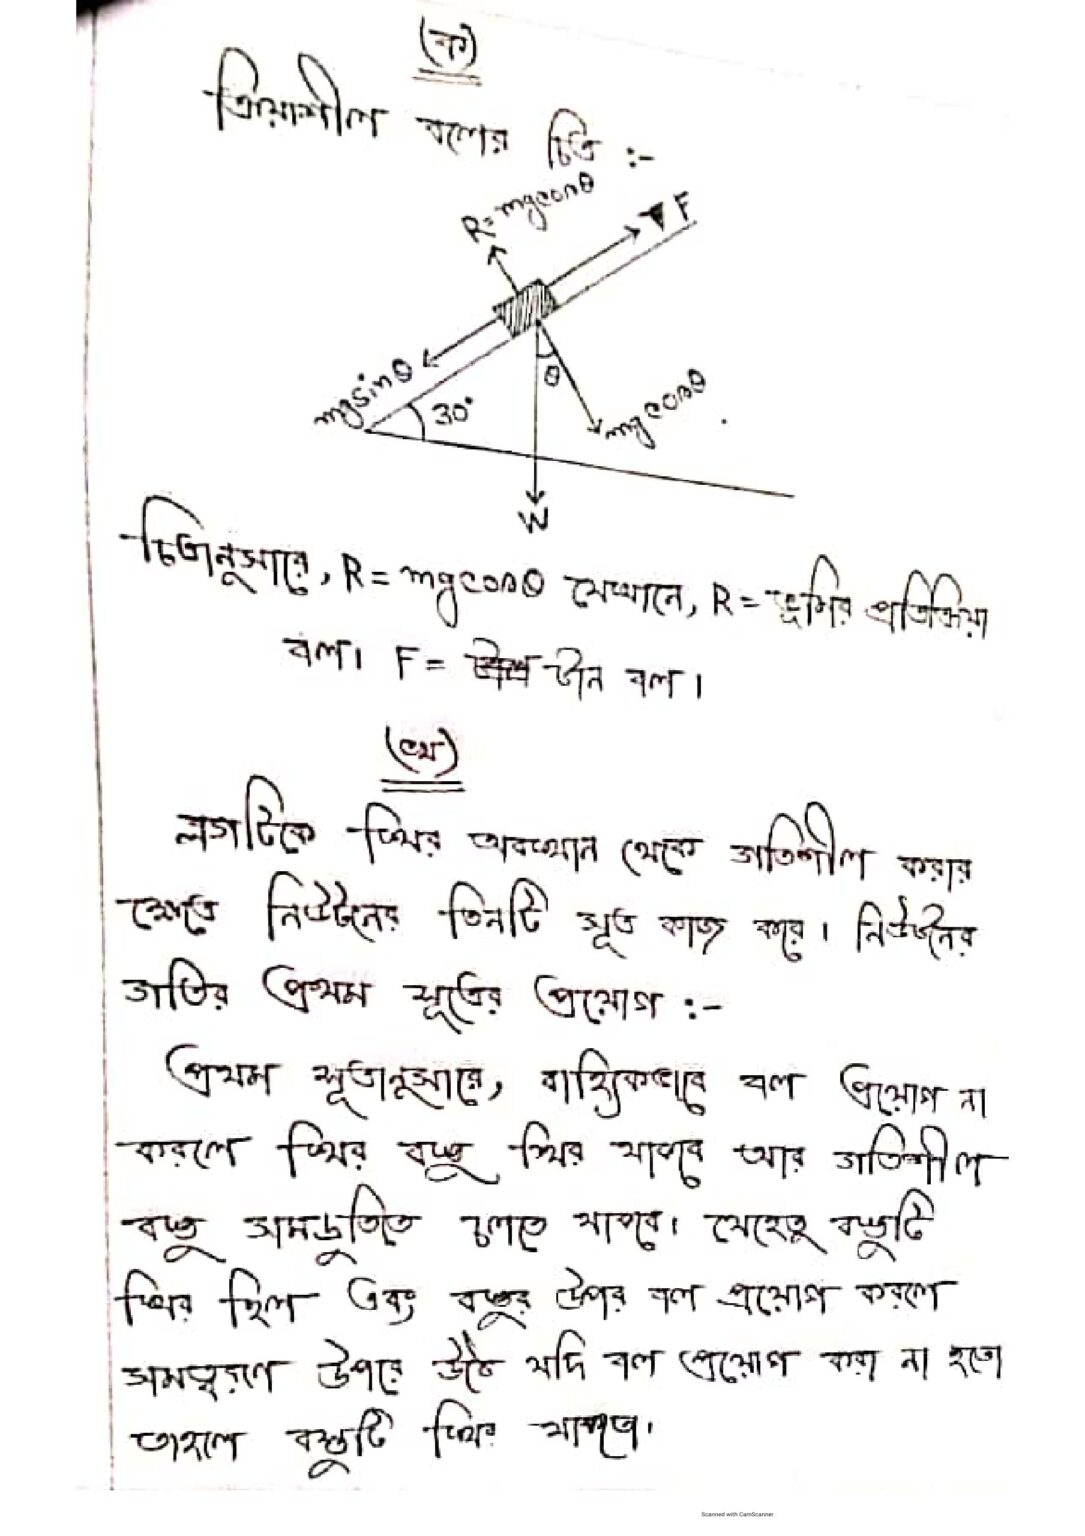 (ক)
ক্রিয়াশীল বলের চিত্র :-
R=mgcosθ
F
mgsinθ
30°
θ
mgcosθ
W
চিত্রানুসারে, R = mgcosθ যেখানে, R = ভূমির প্রতিক্রিয়া
বল। F = টান বল।
(খ)
লগটিকে স্থির অবস্থান থেকে গতিশীল করার
ক্ষেত্রে নিউটনের তিনটি সূত্র কাজ করে। নিউটনের
গতির প্রথম সূত্রের প্রয়োগ :-
প্রথম সূত্রানুসারে, বাহ্যিকভাবে বল প্রয়োগ না
করলে স্থির বস্তু স্থির থাকবে আর গতিশীল
বস্তু সমদ্রুতিতে চলতে থাকবে। যেহেতু বস্তুটি
স্থির ছিল এবং বস্তুর উপর বল প্রয়োগ করলে
সমত্বরণে উপরে উঠে যদি বল প্রয়োগ করা না হতো
তাহলে বস্তুটি স্থির থাকতো।
Scanned with CamScanner